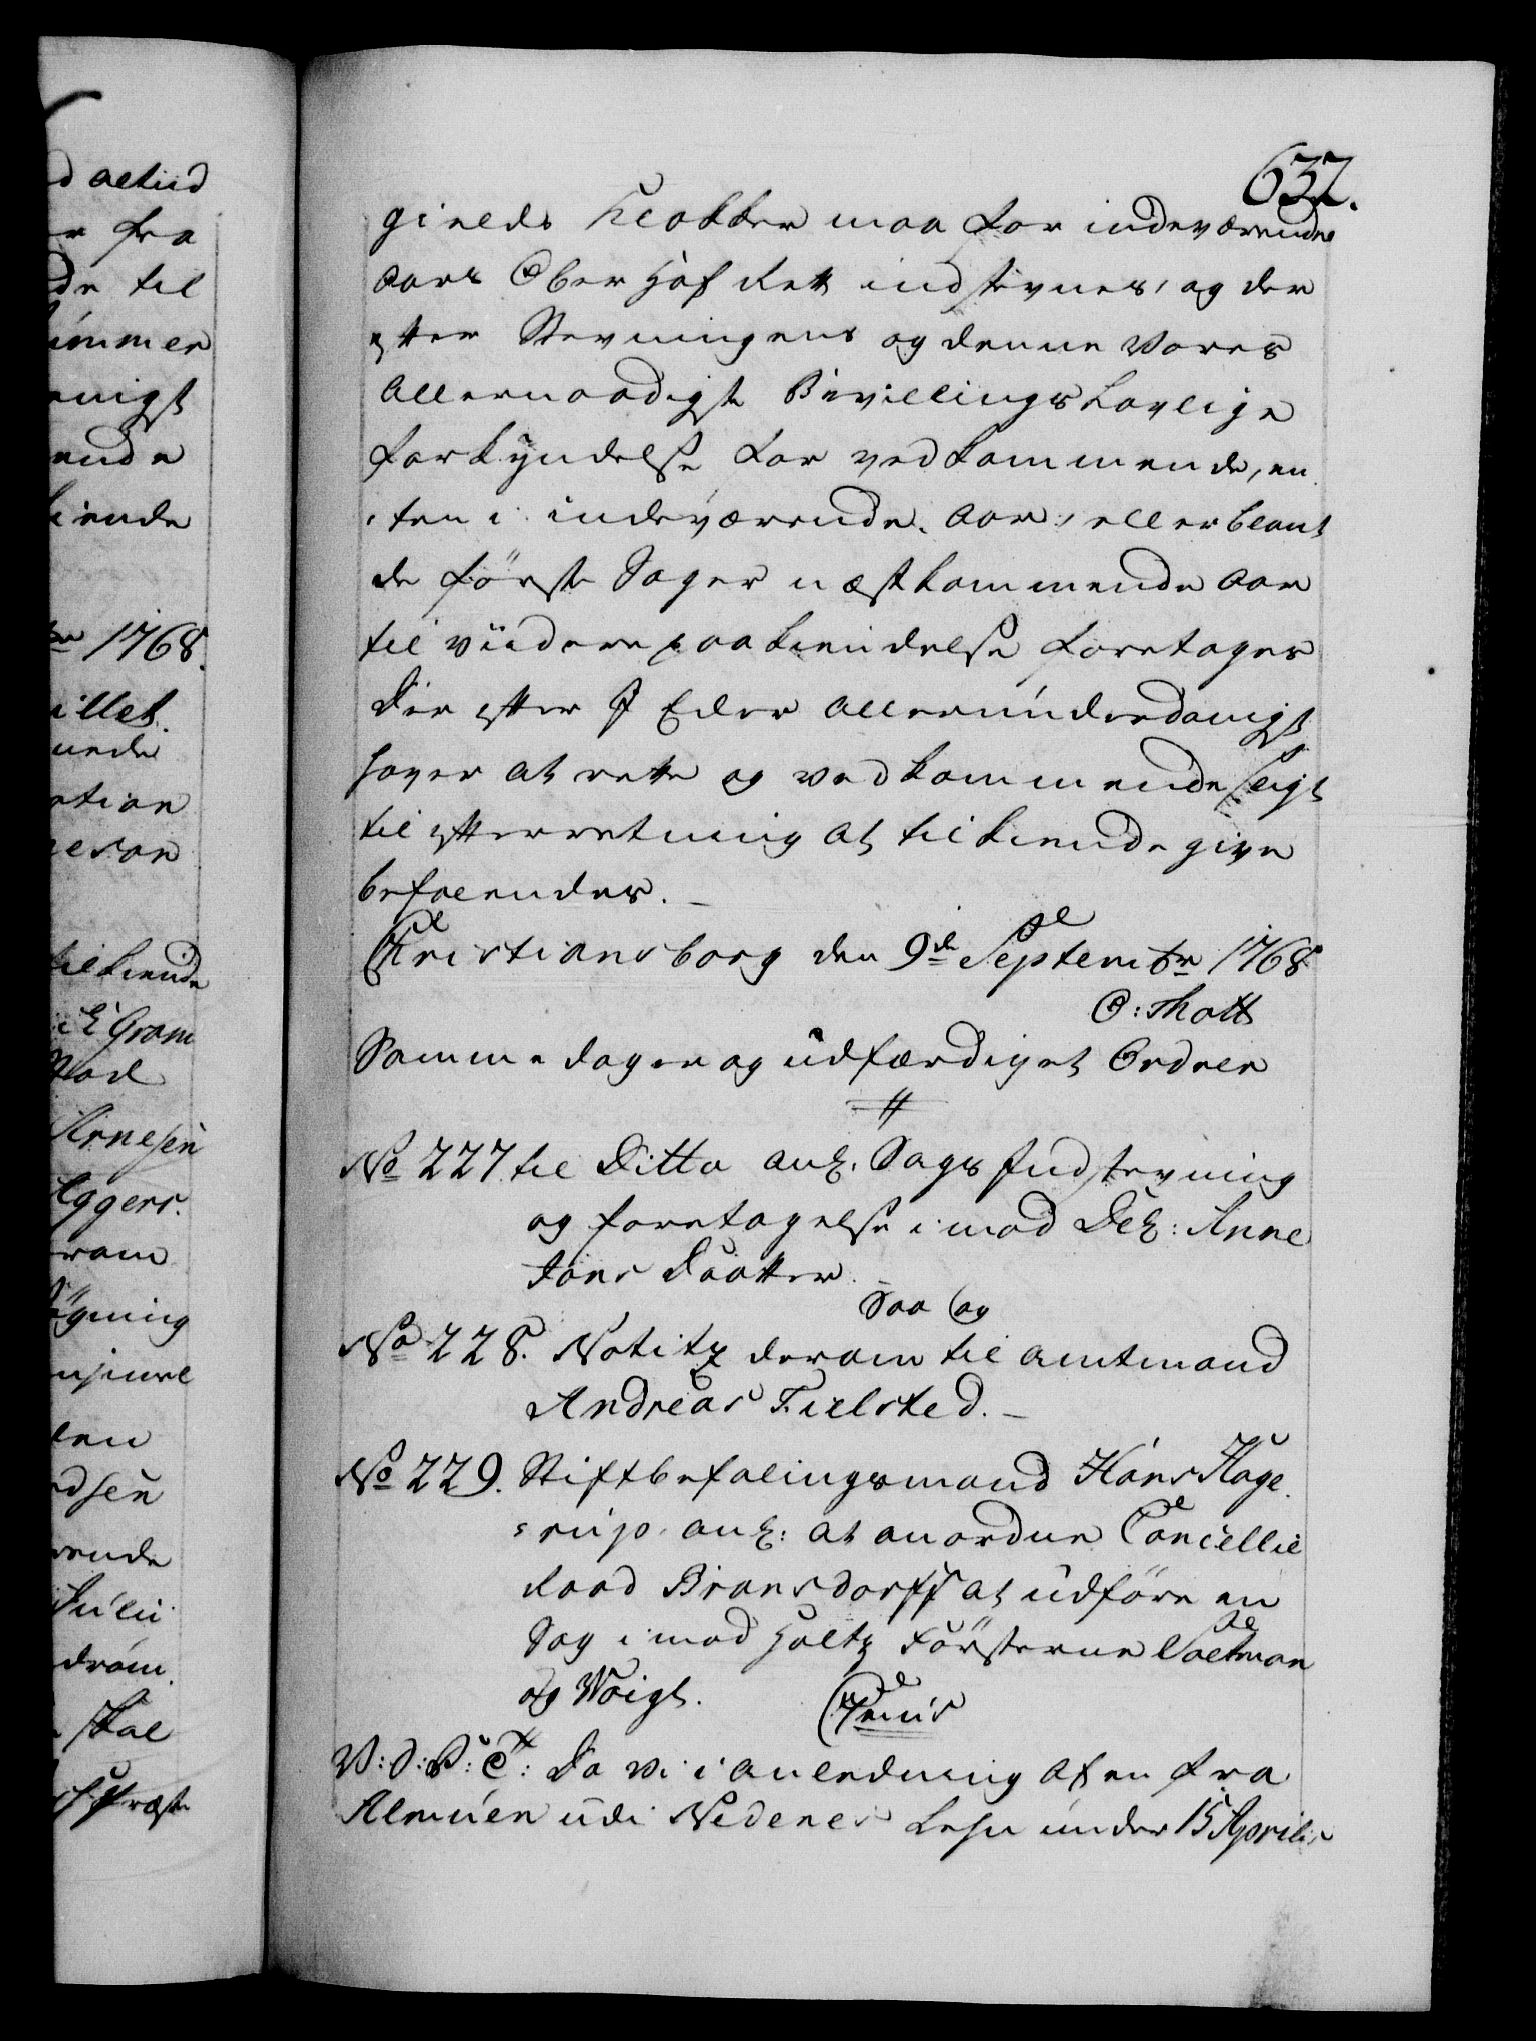 632.
gields Klokker maa for indeværende
Aars Ober Hof Rett indstevnes, og der
efter Stevningens og denne Vores
Allernaadigste Bevillings Lovlige
forkÿndelse for vedkommende, en
ten i indeværende Aar, eller blant
de förste Sager næstkommende Aar
til viidere paakiendelse foretages
Der efter I Eder allerunderdanigst
haver at rette og vedkommende sligt
til efterretning at tilkiende give
befalendes.
Christiansborg den 9de Septembr 1768
O: Thott
Samme dag er og udfærdiget Ordrer
No 227 til Ditto ang. Sags Indstevning
og foretagelse imod Del: Anne
Jons Daatter.
Saa og
No 228. Notitz derom til Amtmand
Andreas Fielsted.
No 229. Stiftbefalingsmand Hans Hage
rup ang: at anordne Cancellie
Raad Bransdorff at udföre en
Sag imod Holtz Försterne
og Voigt.
V: O: P: G: Da Vi i anledning af en fra
Almuen udi Nedenes Lehn under 15 Aprilis
d altid
r fra
de til
immer
nigst
ende
kiende
1768.
illet
nede
ation
tilkiende
Gram
Arnesen
Eggers.
ram
len
dsen
rende
Skal